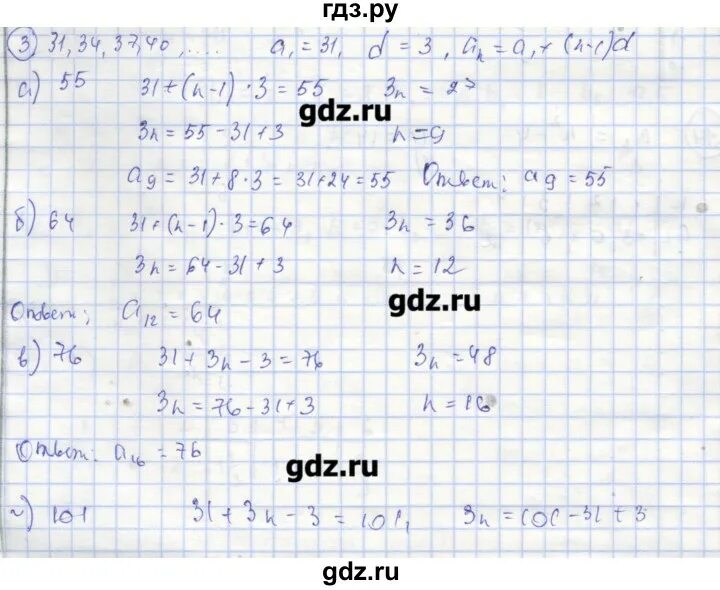 гдз.ру
③ 31, 34, 37, 40, .... a₁ = 31, d = 3, aₙ = a₁ + (n-1)d
а) 55 31 + (n-1) · 3 = 55 3n = 27
gdz.ru
3n = 55 - 31 + 3 n = 9
a₉ = 31 + 8 · 3 = 31 + 24 = 55 Ответ: a₉ = 55
б) 64 31 + (n-1) · 3 = 64 3n = 36
3n = 64 - 31 + 3 n = 12
gdz.ru
Ответ: a₁₂ = 64
в) 76 31 + 3n - 3 = 76 3n = 48
3n = 76 - 31 + 3 n = 16
Ответ: a₁₆ = 76
gdz.ru
г) 101 31 + 3n - 3 = 101, 3n = 101 - 31 + 3
gdz.ru